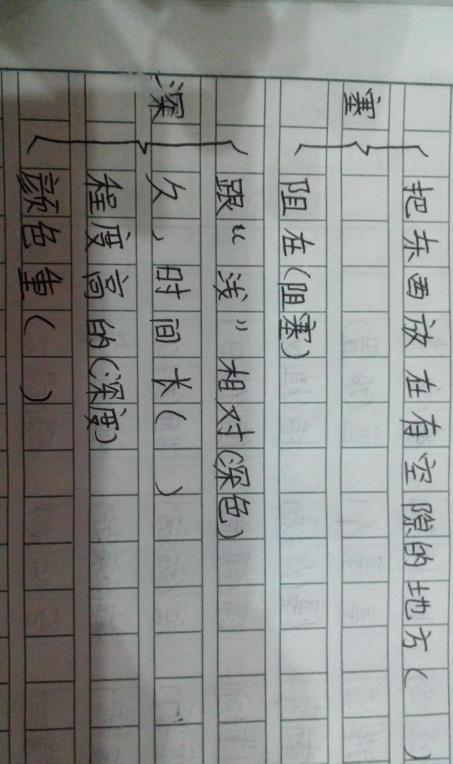 把东西放在有空隙的地方( )
塞
阻在(阻塞)
跟“浅”相对(深色)
深 久,时间长( )
程度高的(深度)
颜色重( )